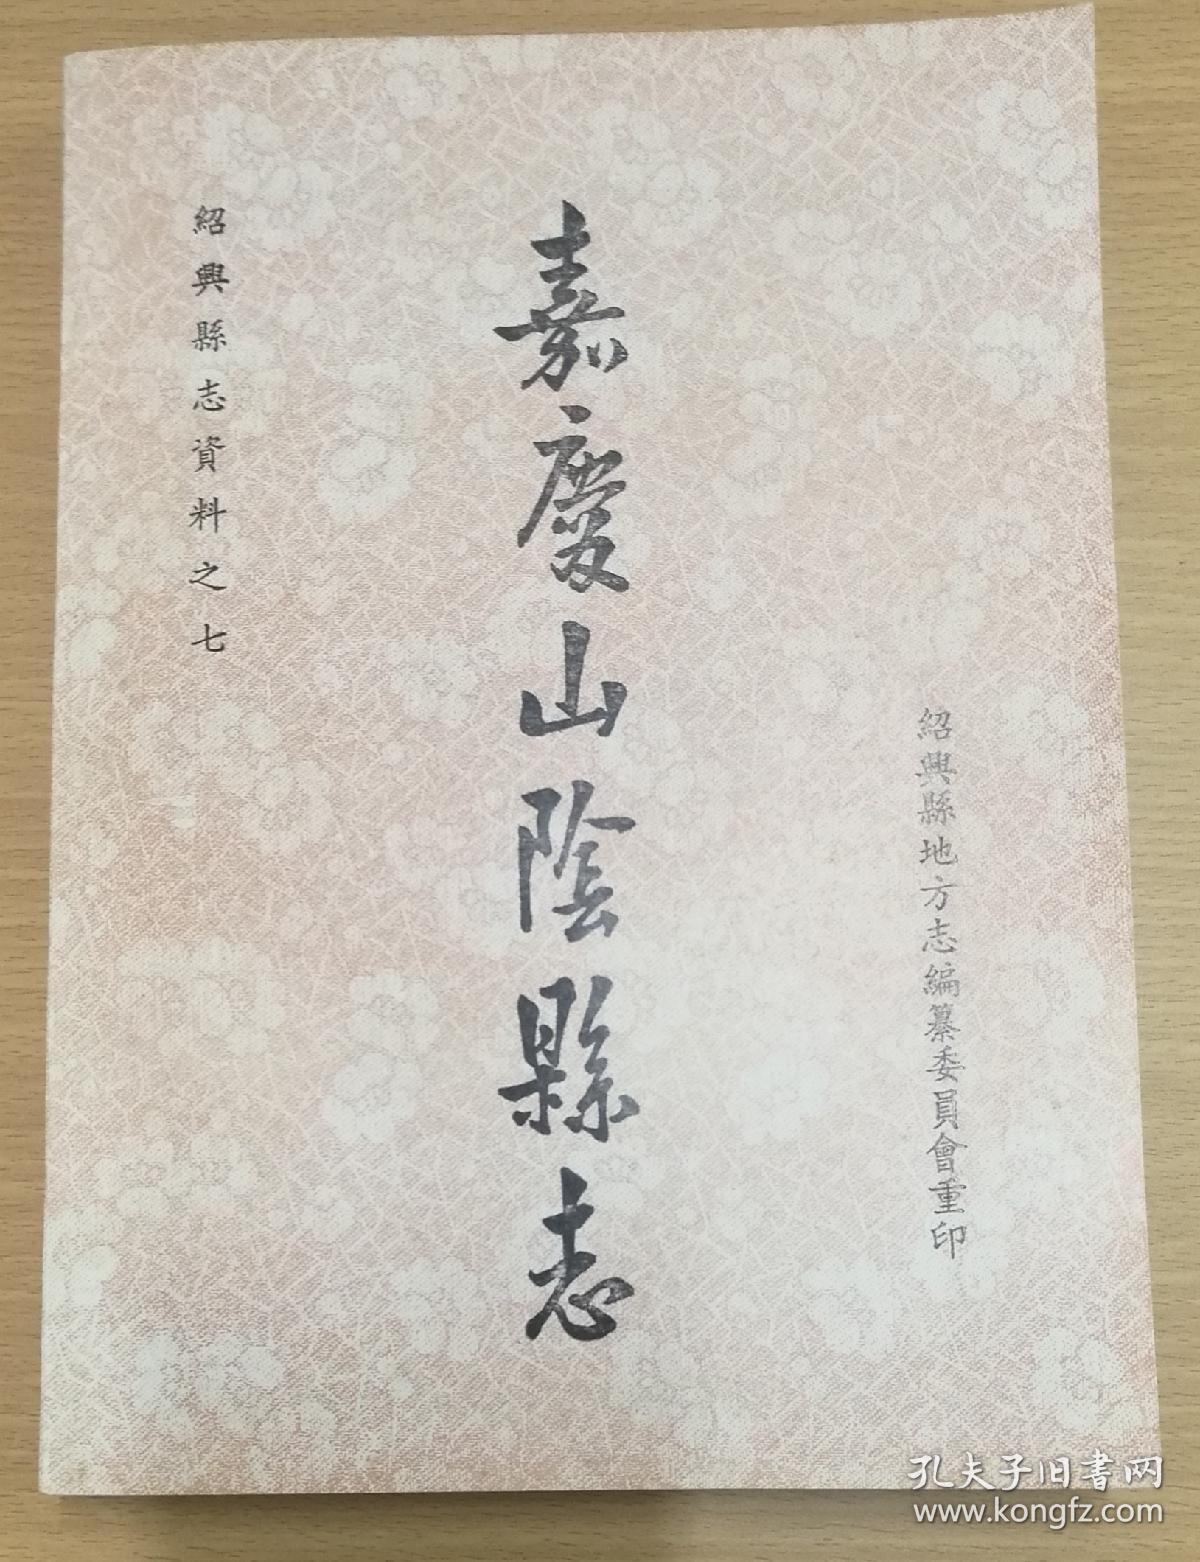 紹興縣志資料之七
嘉慶山陰縣志
紹興縣地方志編纂委員會重印
孔夫子旧書网
www.kongfz.com